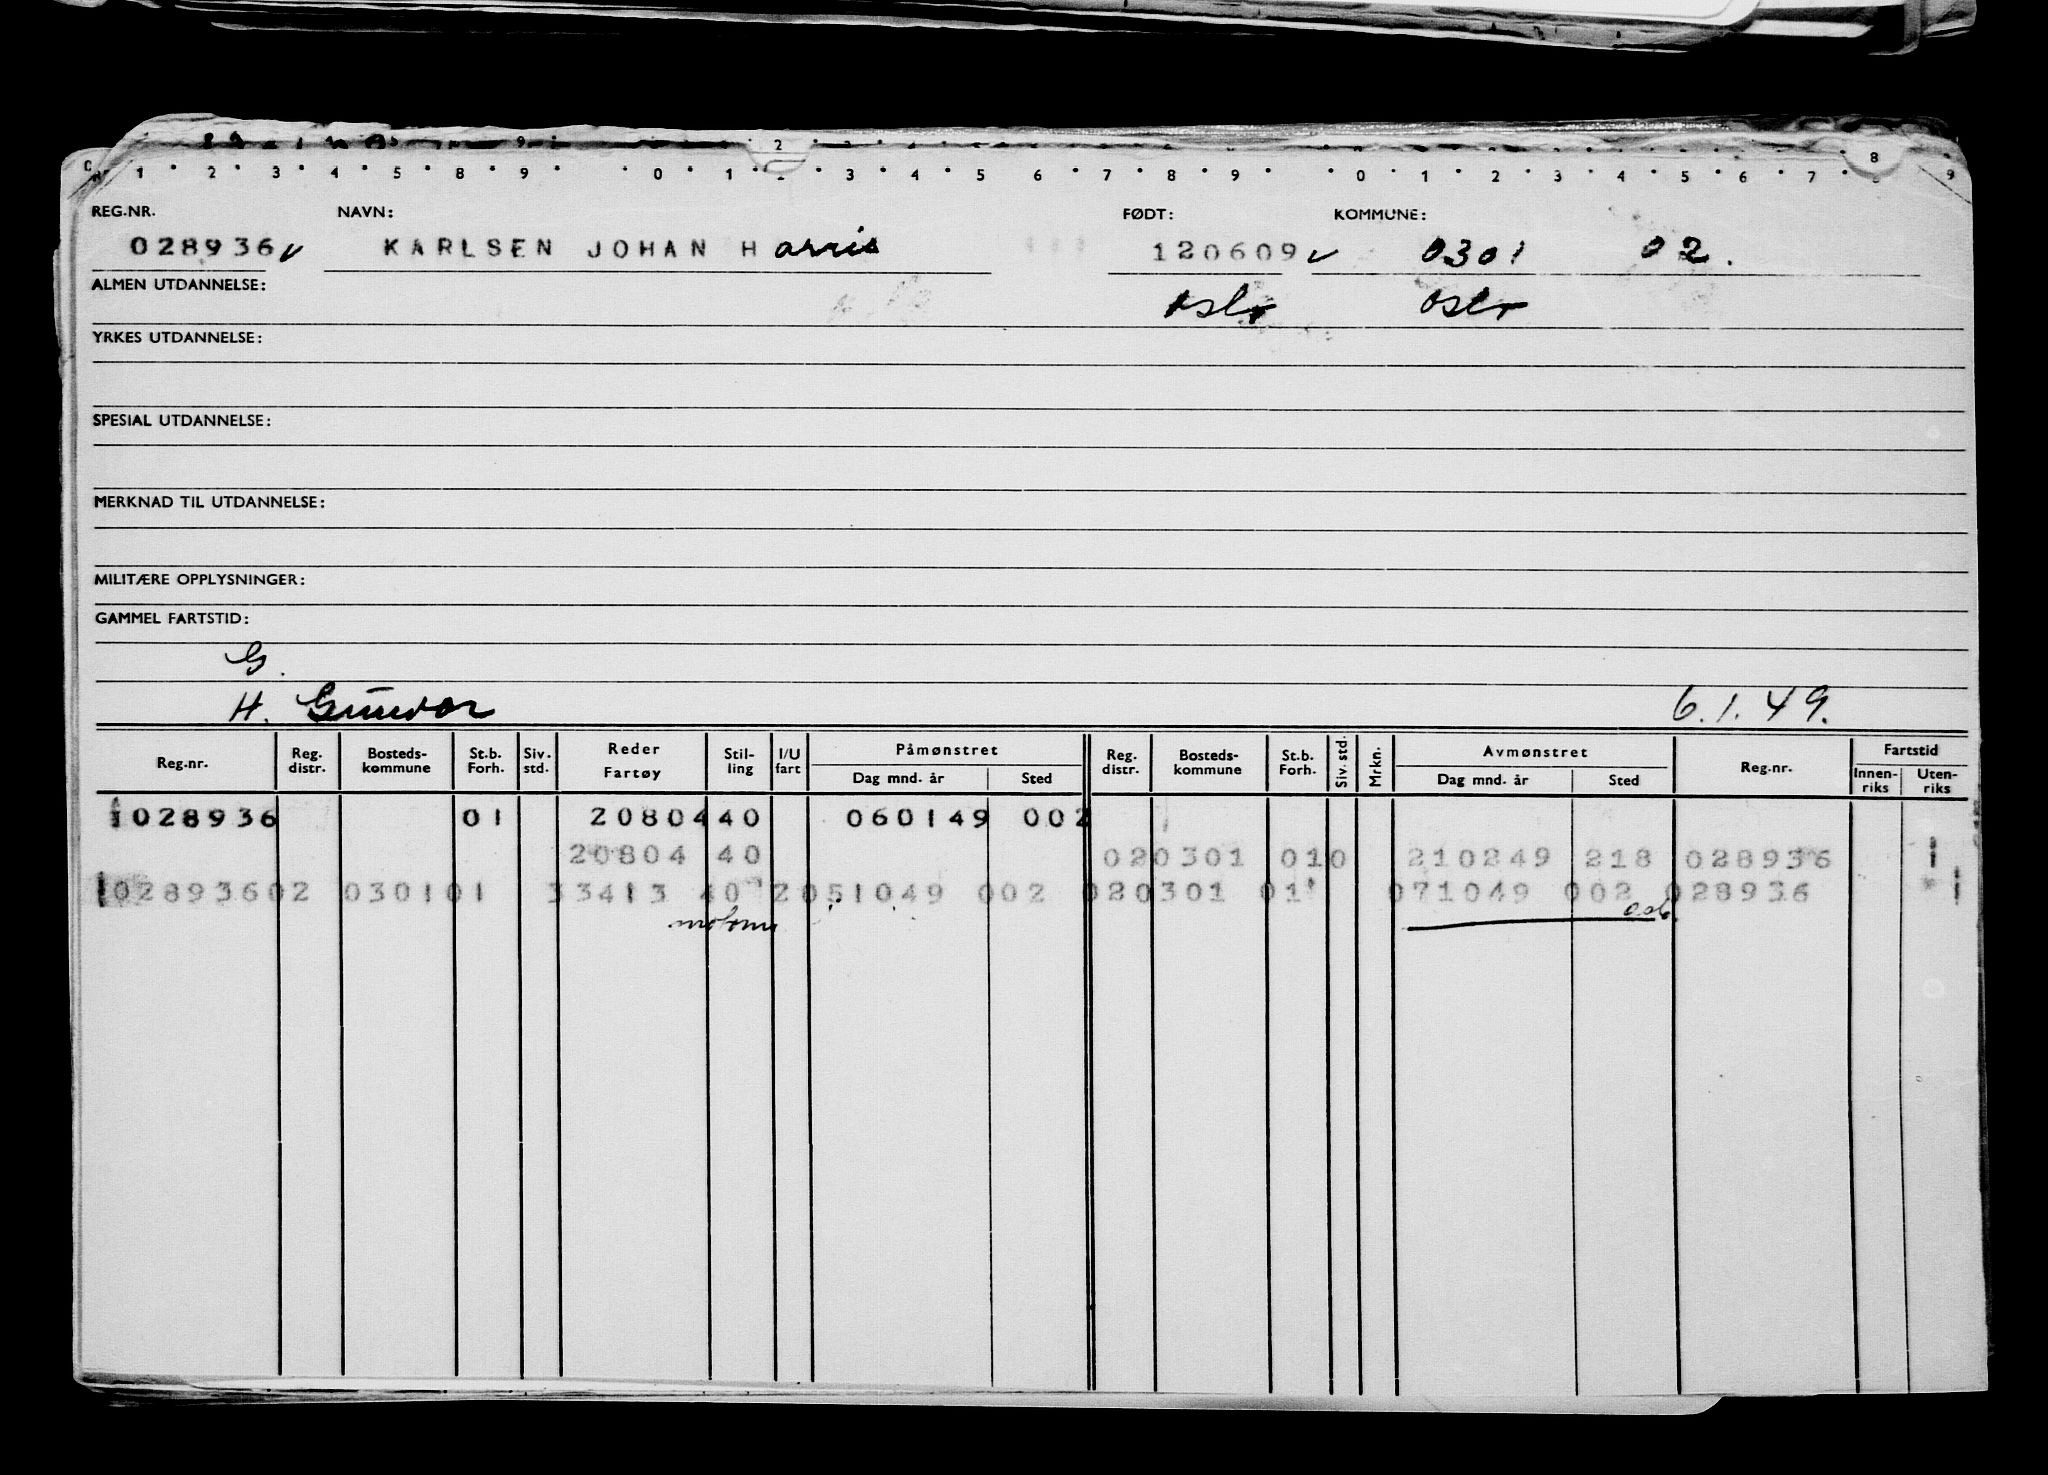 1 2 3 4 5 8 9 0 1 2 3 4 5 6 7 8 9 0 1 2 3 4 5 6 7 8 9
REG.NR. NAVN: FØDT: KOMMUNE:
028936v KARLSEN JOHAN Harris 120609v 0301 02.
ALMEN UTDANNELSE: oslo oslo
YRKES UTDANNELSE:
SPESIAL UTDANNELSE:
MERKNAD TIL UTDANNELSE:
MILITÆRE OPPLYSNINGER:
GAMMEL FARTSTID:
G.
H. Gunvor 6.1.49.
Reg.nr. Reg. distr. Bosteds-kommune St.b. Forh. Siv. std. Reder Fartøy Stil-ling I/U fart Påmønstret Dag mnd. år Sted Reg. distr. Bosteds-kommune St.b. Forh. Siv. std. Mrkn. Avmønstret Dag mnd. år Sted Reg.nr. Fartstid Innen-riks Uten-riks
1 028936 01 20804 40 060149 002
20804 40 020301 010 210249 218 028936 1
1 028936 02 0301 01 33413 40 2 051049 002 020301 01 071049 002 028936 1
osl.